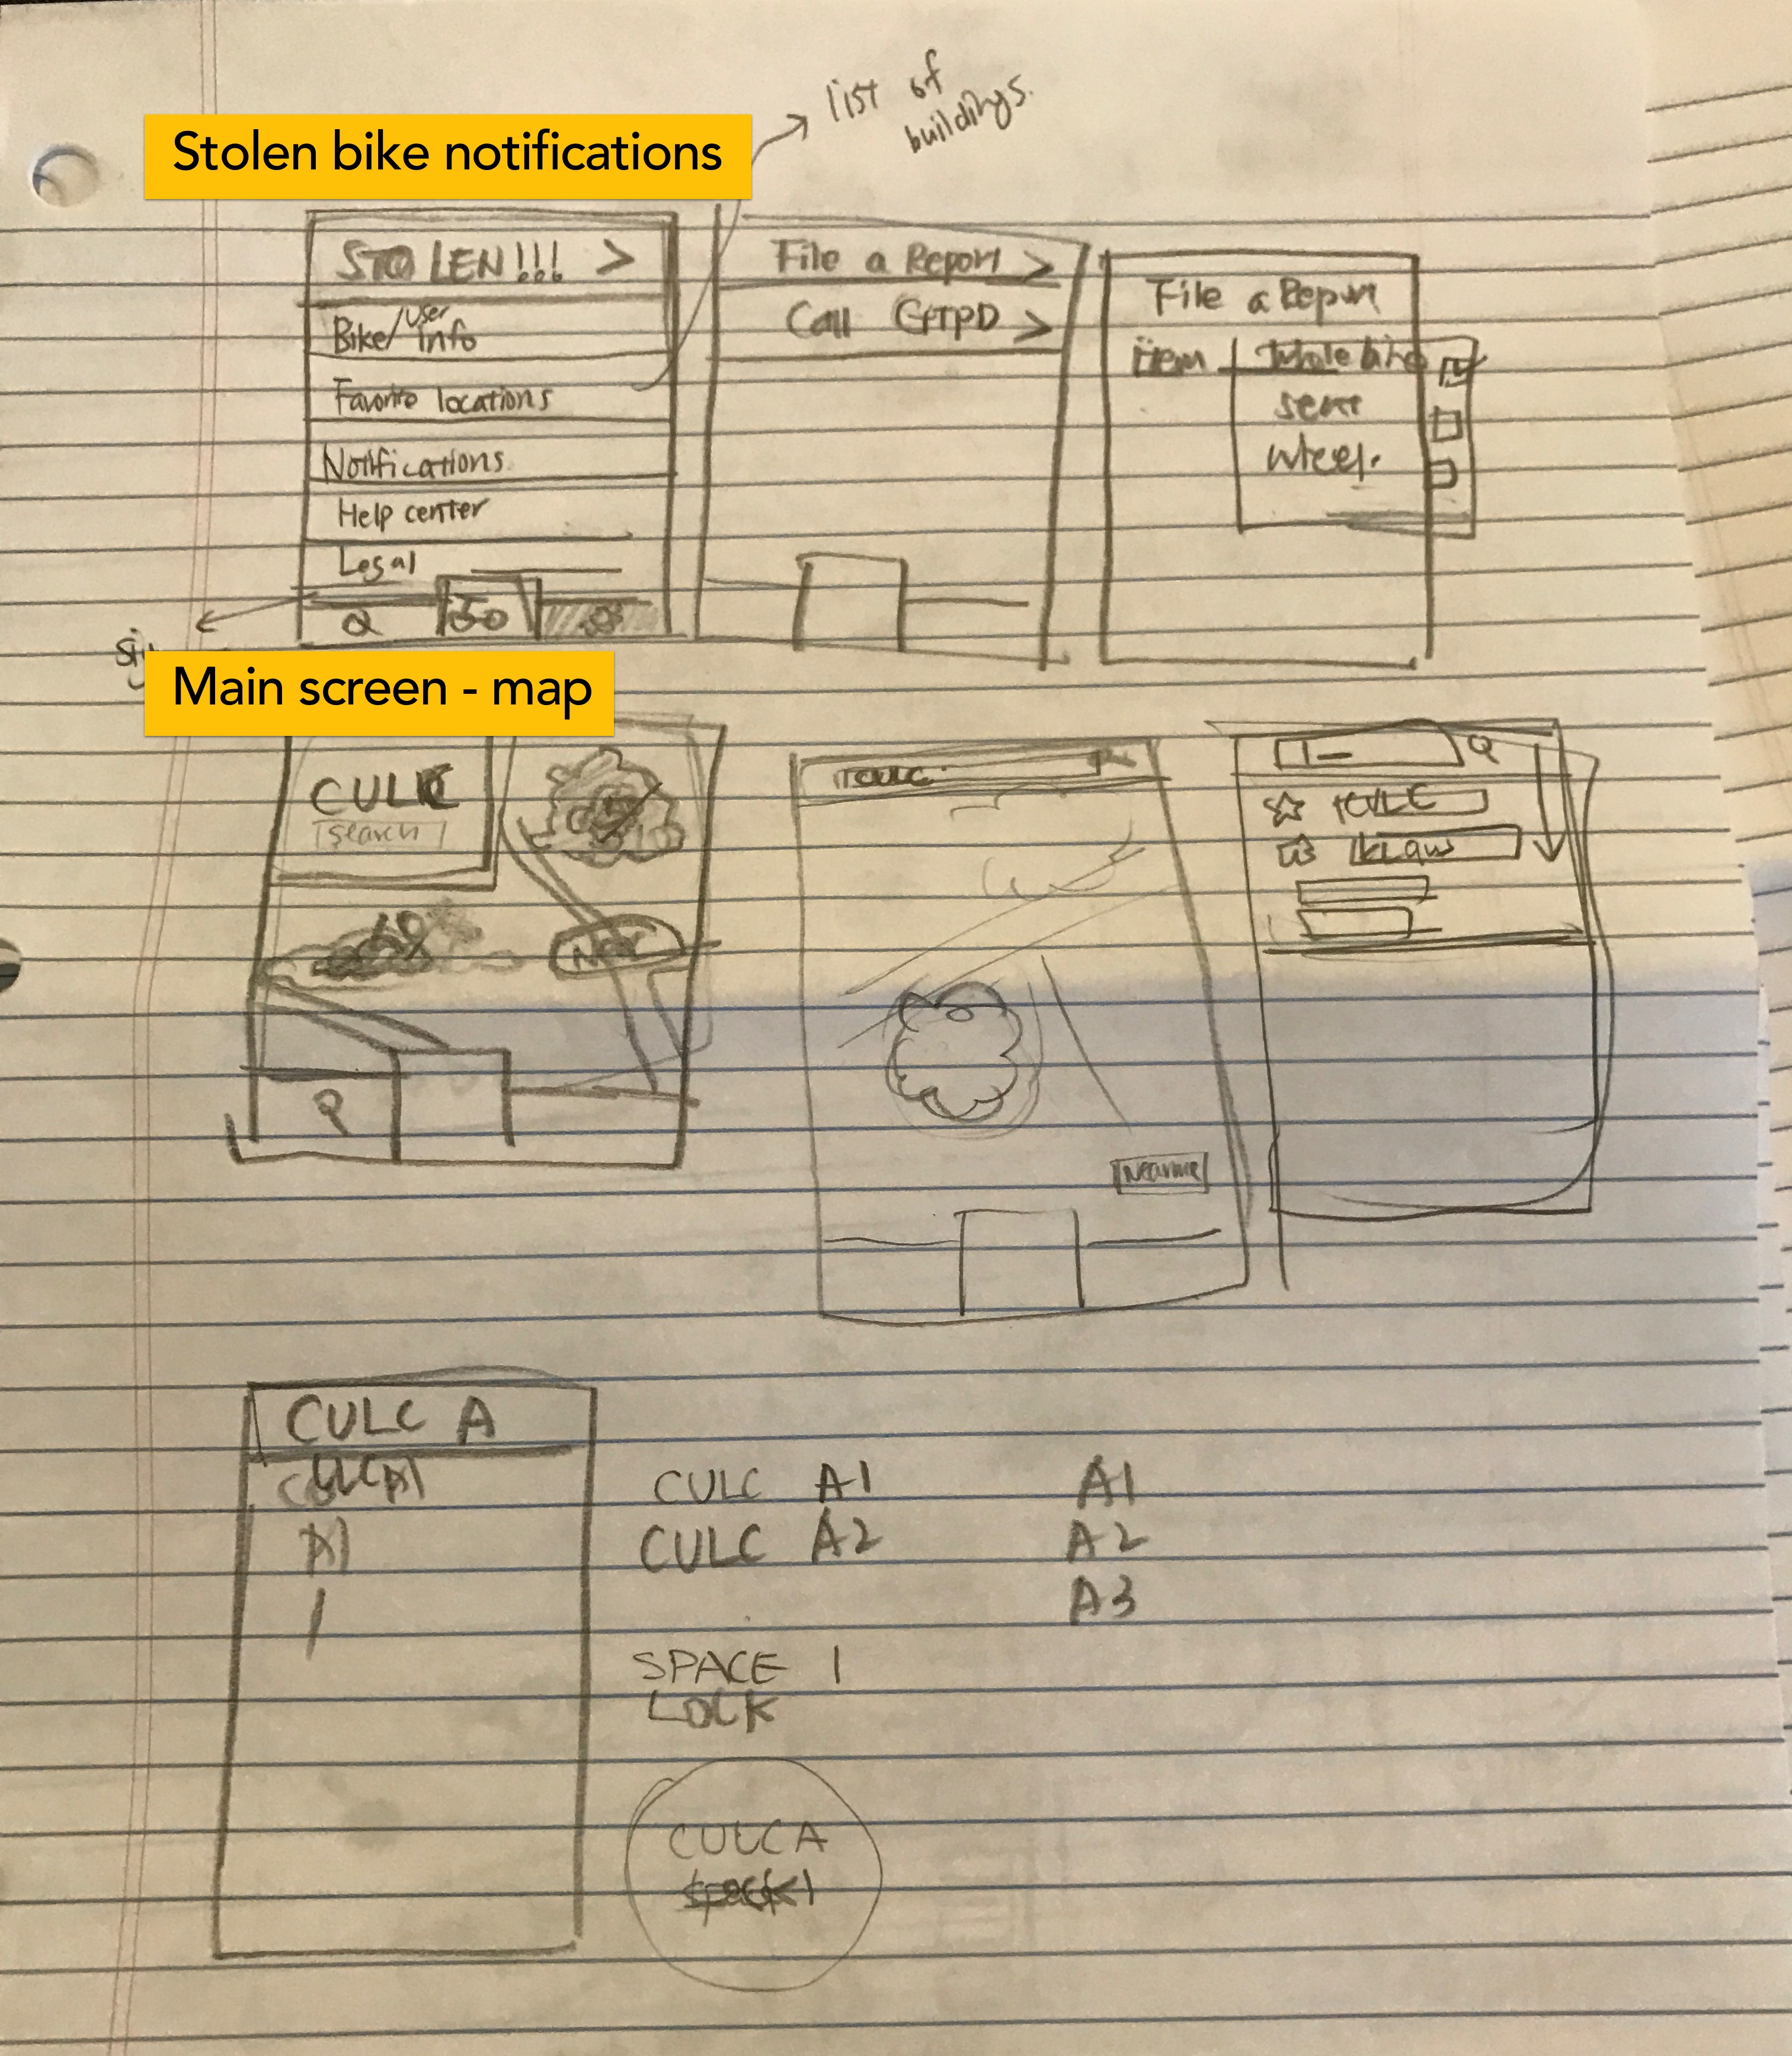 list of
buildings.
Stolen bike notifications
STOLEN!!! >
Bike/User info
Favorite locations
Notifications
Help center
Legal
File a Report >
Call GTPD >
File a Report
Item
Whole bike
seat
wheel.
Main screen - map
CULC
search
CULC
Near me
CULC
Klaus
CULC A
CULC A1
A1
1
CULC A1
CULC A2
A1
A2
A3
SPACE 1
LOCK
CULC A